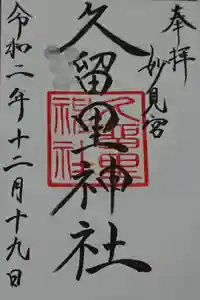 奉拝
妙見宮
久留里神社
久留里神社
令和二年十二月十九日